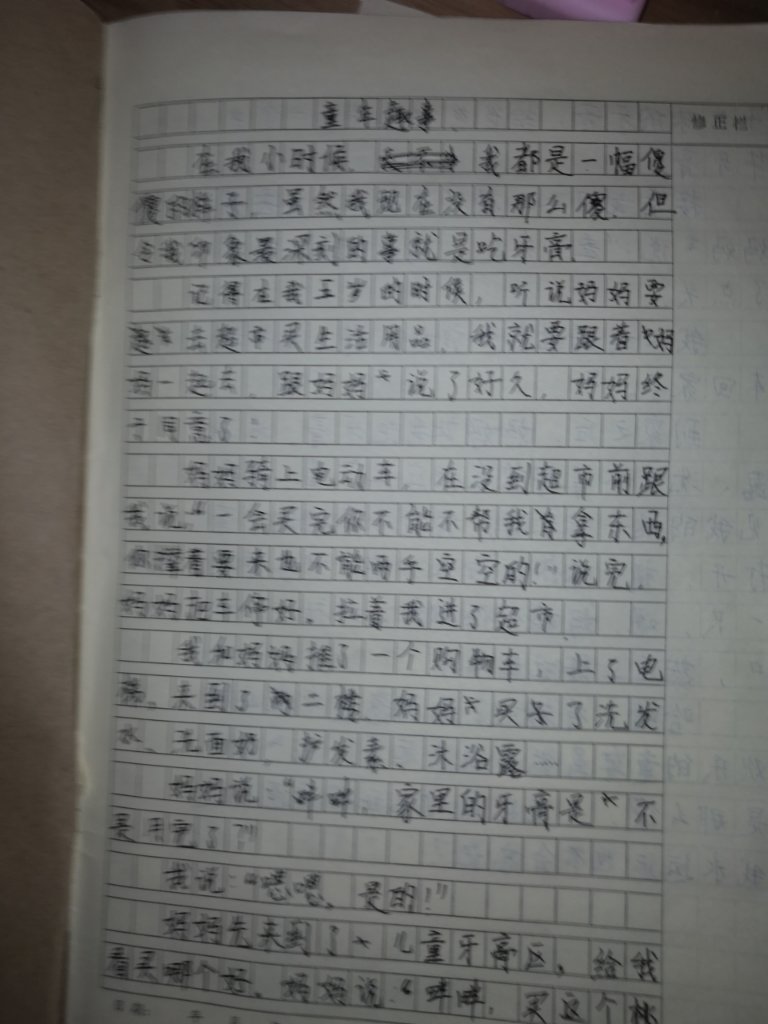 童年趣事
修正栏
在我小时候,我都是一幅傻
傻的样子,虽然我现在没有那么傻,但
令我印象最深刻的事就是吃牙膏
记得在我五岁的时候,听说妈妈要
去超市买生活用品,我就要跟着妈
妈一起去,跟妈妈说了好久,妈妈终
于同意了
妈妈骑上电动车,在没到超市前跟
我说:“一会买完你不能不帮我拿东西,
你要来也不能两手空空的!”说完,
妈妈把车停好,拉着我进了超市
我和妈妈推了一个购物车,上了电
梯,来到了二楼,妈妈买了洗发
水、洗面奶、护发素、沐浴露……
妈妈说:“咩咩,家里的牙膏是不
是用完了?”
我说:“嗯嗯,是的!”
妈妈先来到了儿童牙膏区,给我
看买哪个好,妈妈说:“咩咩,买这个